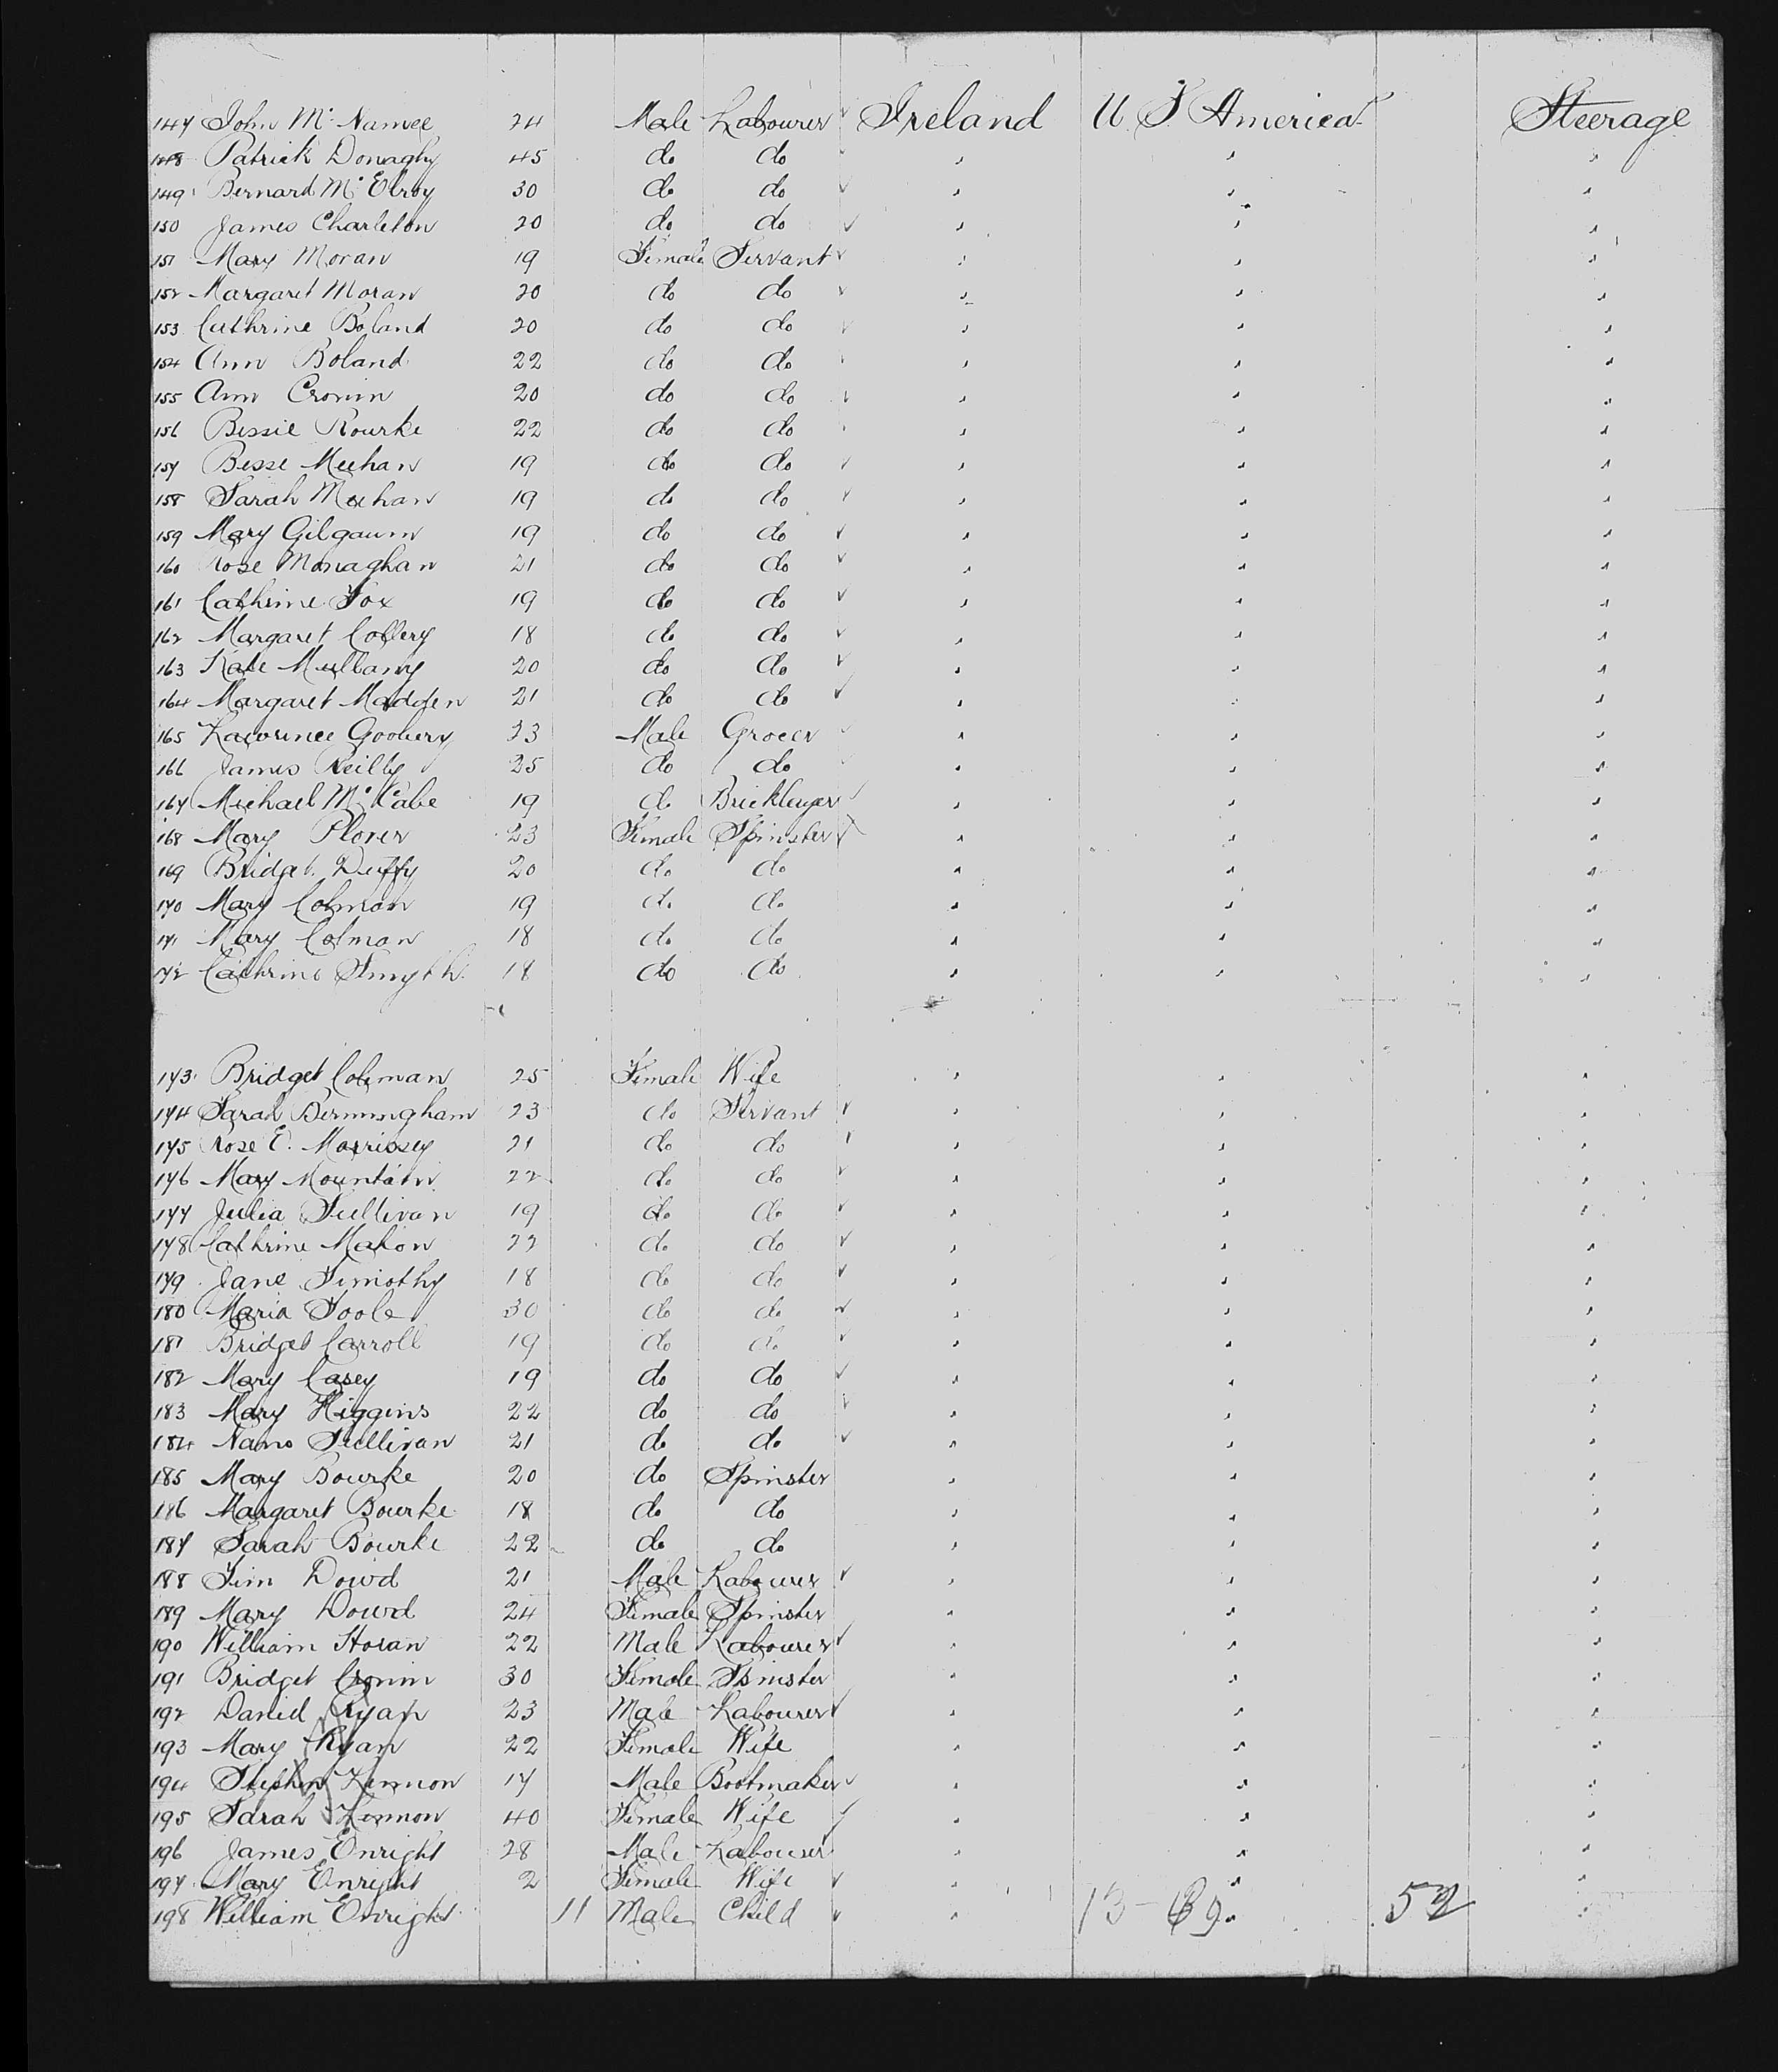 147 John Mc Namee 24 Male Labourer Ireland U. S. America Steerage
148 Patrick Donaghy 45 do do " " "
149 Bernard Mc Elroy 30 do do " " "
150 James Charleton 20 do do " " "
151 Mary Moran 19 Female Servant " " "
152 Margaret Moran 20 do do " " "
153 Cathrine Boland 20 do do " " "
154 Ann Boland 22 do do " " "
155 Ann Cronin 20 do do " " "
156 Bessie Rourke 22 do do " " "
157 Besse Meehan 19 do do " " "
158 Sarah Meehan 19 do do " " "
159 Mary Gilgaun 19 do do " " "
160 Rose Monaghan 21 do do " " "
161 Cathrine Fox 19 do do " " "
162 Margaret Collery 18 do do " " "
163 Kate Mullany 20 do do " " "
164 Margaret Madden 21 do do " " "
165 Lawrence 23 Male Grocer " " "
166 James Reilly 25 do do " " "
167 Michael Mc Cabe 19 do Bricklayer " " "
168 Mary Plover 23 Female Spinster " " "
169 Bridget Duffy 20 do do " " "
170 Mary Colman 19 do do " " "
171 Mary Colman 18 do do " " "
172 Cathrine Smyth 18 do do " " "
173 Bridget Coleman 25 Female Wife " " "
174 Sarah Bermingham 23 do Servant " " "
175 Rose E. Morrissey 21 do do " " "
176 Mary Mountain 22 do do " " "
177 Julia Sullivan 19 do do " " "
178 Cathrine Mahon 22 do do " " "
179 Jane Timothy 18 do do " " "
180 Maria Toole 30 do do " " "
181 Bridget Carroll 19 do do " " "
182 Mary Casey 19 do do " " "
183 Mary Higgins 22 do do " " "
184 Nano Sullivan 21 do do " " "
185 Mary Bourke 20 do Spinster " " "
186 Margaret Bourke 18 do do " " "
187 Sarah Bourke 22 do do " " "
188 Tim Dowd 21 Male Labourer " " "
189 Mary Dowd 24 Female Spinster " " "
190 William Horan 22 Male Labourer " " "
191 Bridget Cronin 30 Female Spinster " " "
192 Daniel Ryan 23 Male Labourer " " "
193 Mary Ryan 22 Female Wife " " "
194 Stephen Lennon 17 Male Bootmaker " " "
195 Sarah Lennon 40 Female Wife " " "
196 James Enright 28 Male Labourer " " "
197 Mary Enright 2 Female Wife " " "
198 William Enright 11 Male Child " 13 - 39 " 52 "